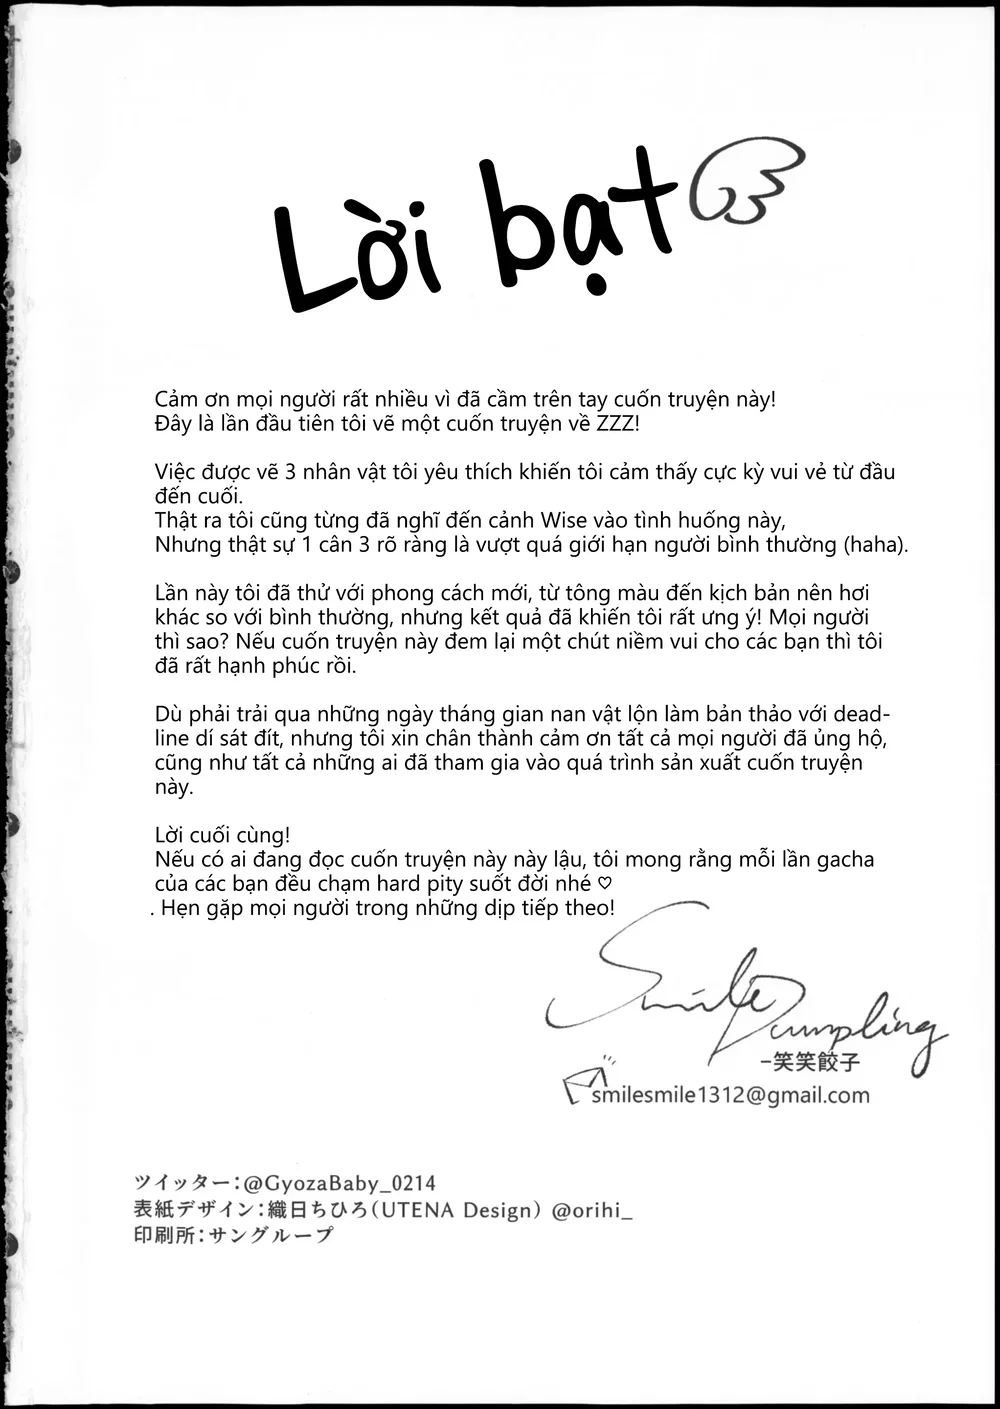 Lời bạt
Cảm ơn mọi người rất nhiều vì đã cầm trên tay cuốn truyện này!
Đây là lần đầu tiên tôi vẽ một cuốn truyện về ZZZ!
Việc được vẽ 3 nhân vật tôi yêu thích khiến tôi cảm thấy cực kỳ vui vẻ từ đầu
đến cuối.
Thật ra tôi cũng từng đã nghĩ đến cảnh Wise vào tình huống này,
Nhưng thật sự 1 cân 3 rõ ràng là vượt quá giới hạn người bình thường (haha).
Lần này tôi đã thử với phong cách mới, từ tông màu đến kịch bản nên hơi
khác so với bình thường, nhưng kết quả đã khiến tôi rất ưng ý! Mọi người
thì sao? Nếu cuốn truyện này đem lại một chút niềm vui cho các bạn thì tôi
đã rất hạnh phúc rồi.
Dù phải trải qua những ngày tháng gian nan vật lộn làm bản thảo với dead-
line dí sát đít, nhưng tôi xin chân thành cảm ơn tất cả mọi người đã ủng hộ,
cũng như tất cả những ai đã tham gia vào quá trình sản xuất cuốn truyện
này.
Lời cuối cùng!
Nếu có ai đang đọc cuốn truyện này này lậu, tôi mong rằng mỗi lần gacha
của các bạn đều chạm hard pity suốt đời nhé ♡
. Hẹn gặp mọi người trong những dịp tiếp theo!
Smile Dumpling
-笑笑餃子
smilesmile1312@gmail.com
ツイッター:@GyozaBaby_0214
表紙デザイン:織日ちひろ(UTENA Design) @orihi_
印刷所:サングループ